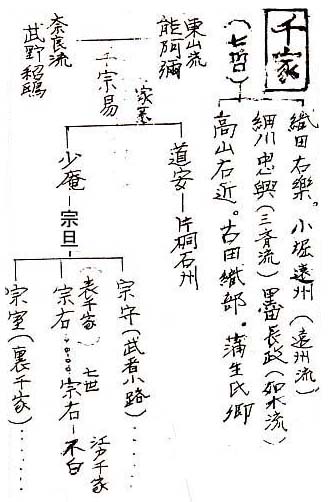 千家
(七哲)
織田有樂。小堀遠州(遠州流)
細川忠興(三斉流)黒田長政(如水流)
高山右近。古田織部。蒲生氏郷
東山流
能阿彌
千宗易
奈良流
武野紹鴎
道安―片桐石州
少庵―宗旦
宗守(武者小路)
(表千家)七世
宗右 宗右―不白
江戸千家
宗室(裏千家)